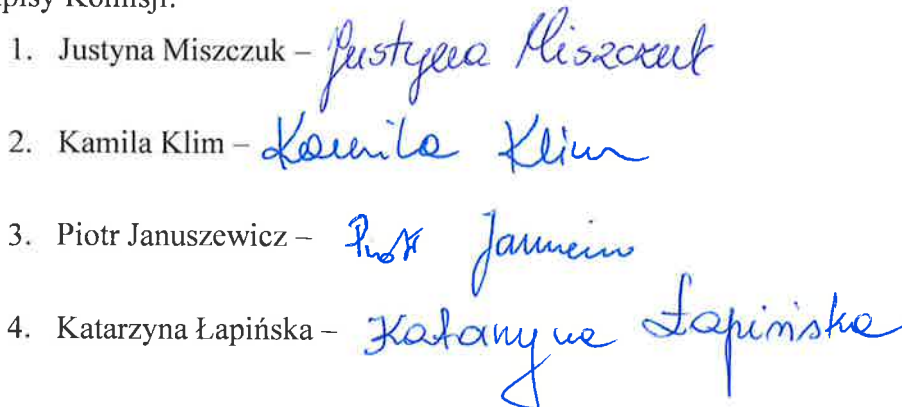 pisy Komisji:
1. Justyna Miszczuk – Justyna Miszczuk
2. Kamila Klim – Kamila Klim
3. Piotr Januszewicz – Piotr
4. Katarzyna Łapińska – Katarzyna Łapińska